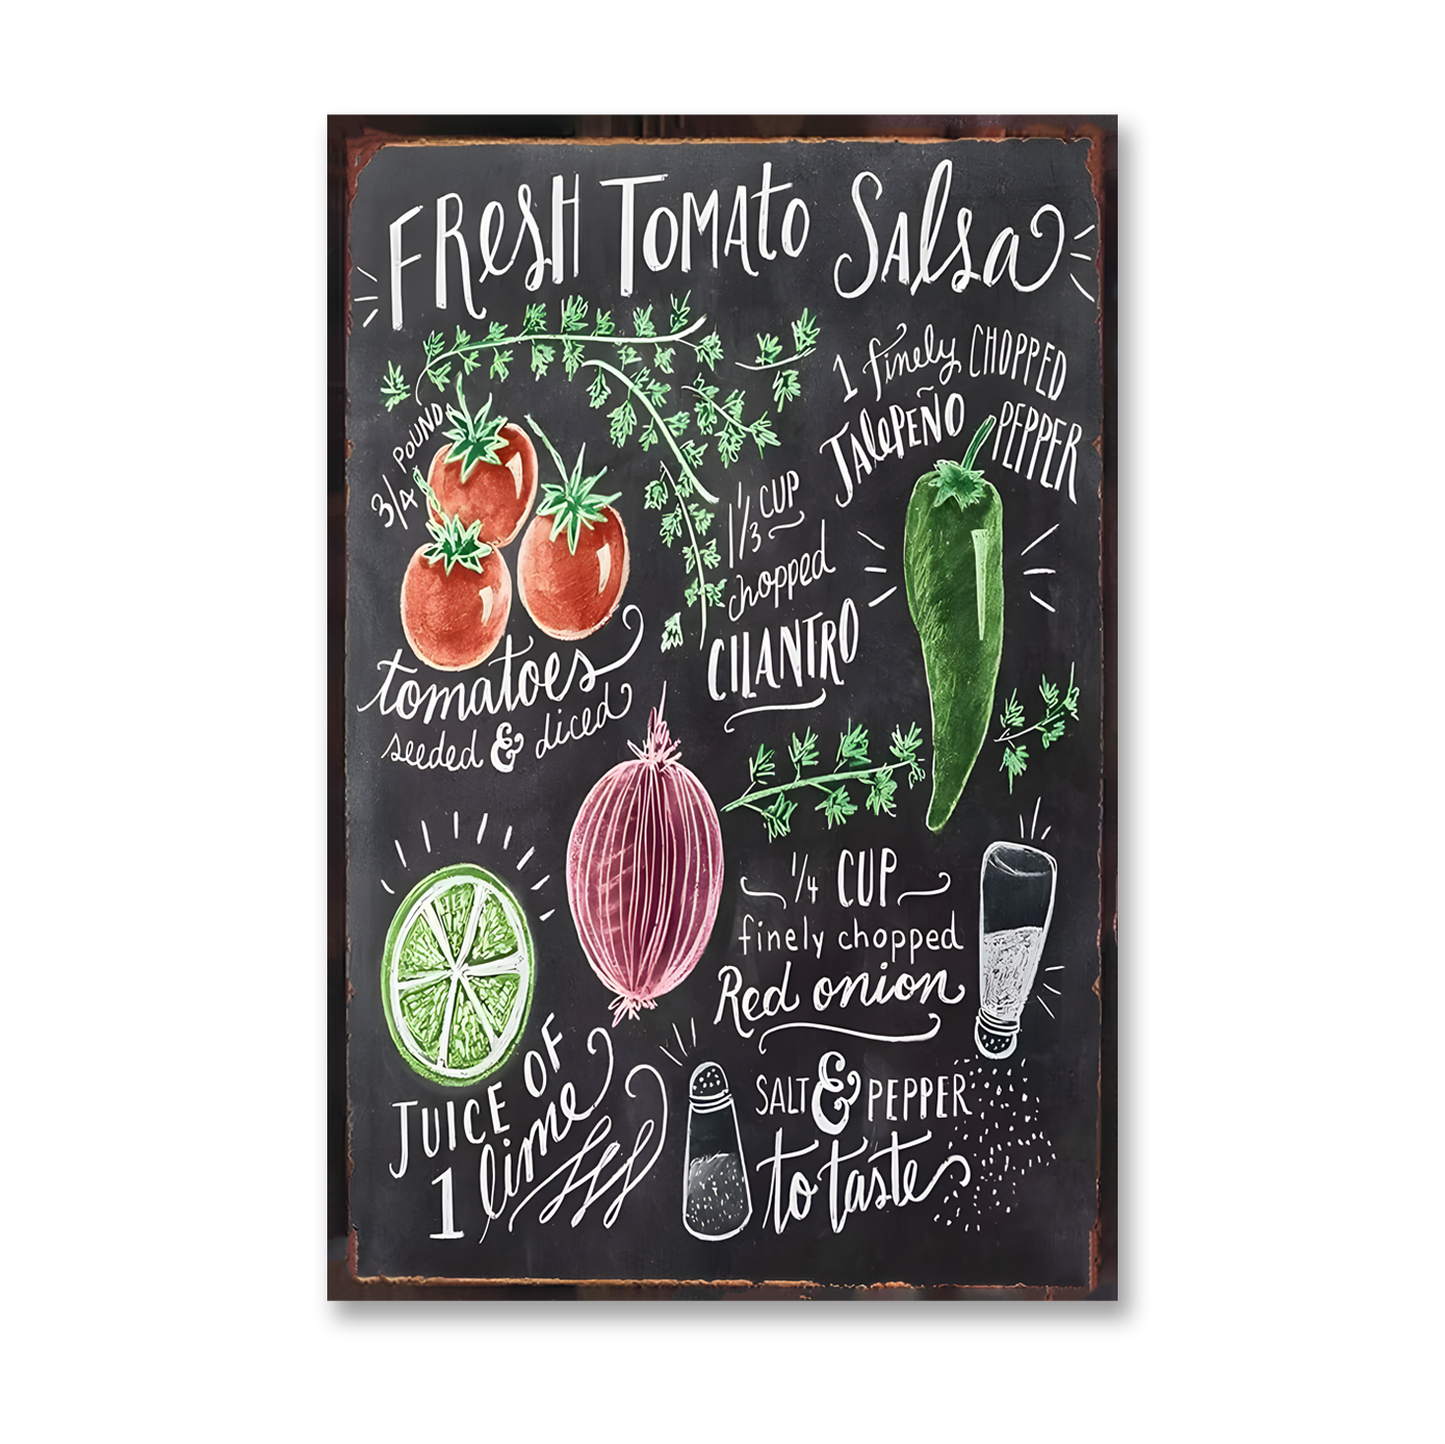 Fresh Tomato Salsa
3/4 pound
tomatoes
seeded & diced
1 finely chopped
jalepeño pepper
1/3 cup
chopped
cilantro
1/4 cup
finely chopped
Red onion
Juice of
1 lime
Salt & pepper
to taste